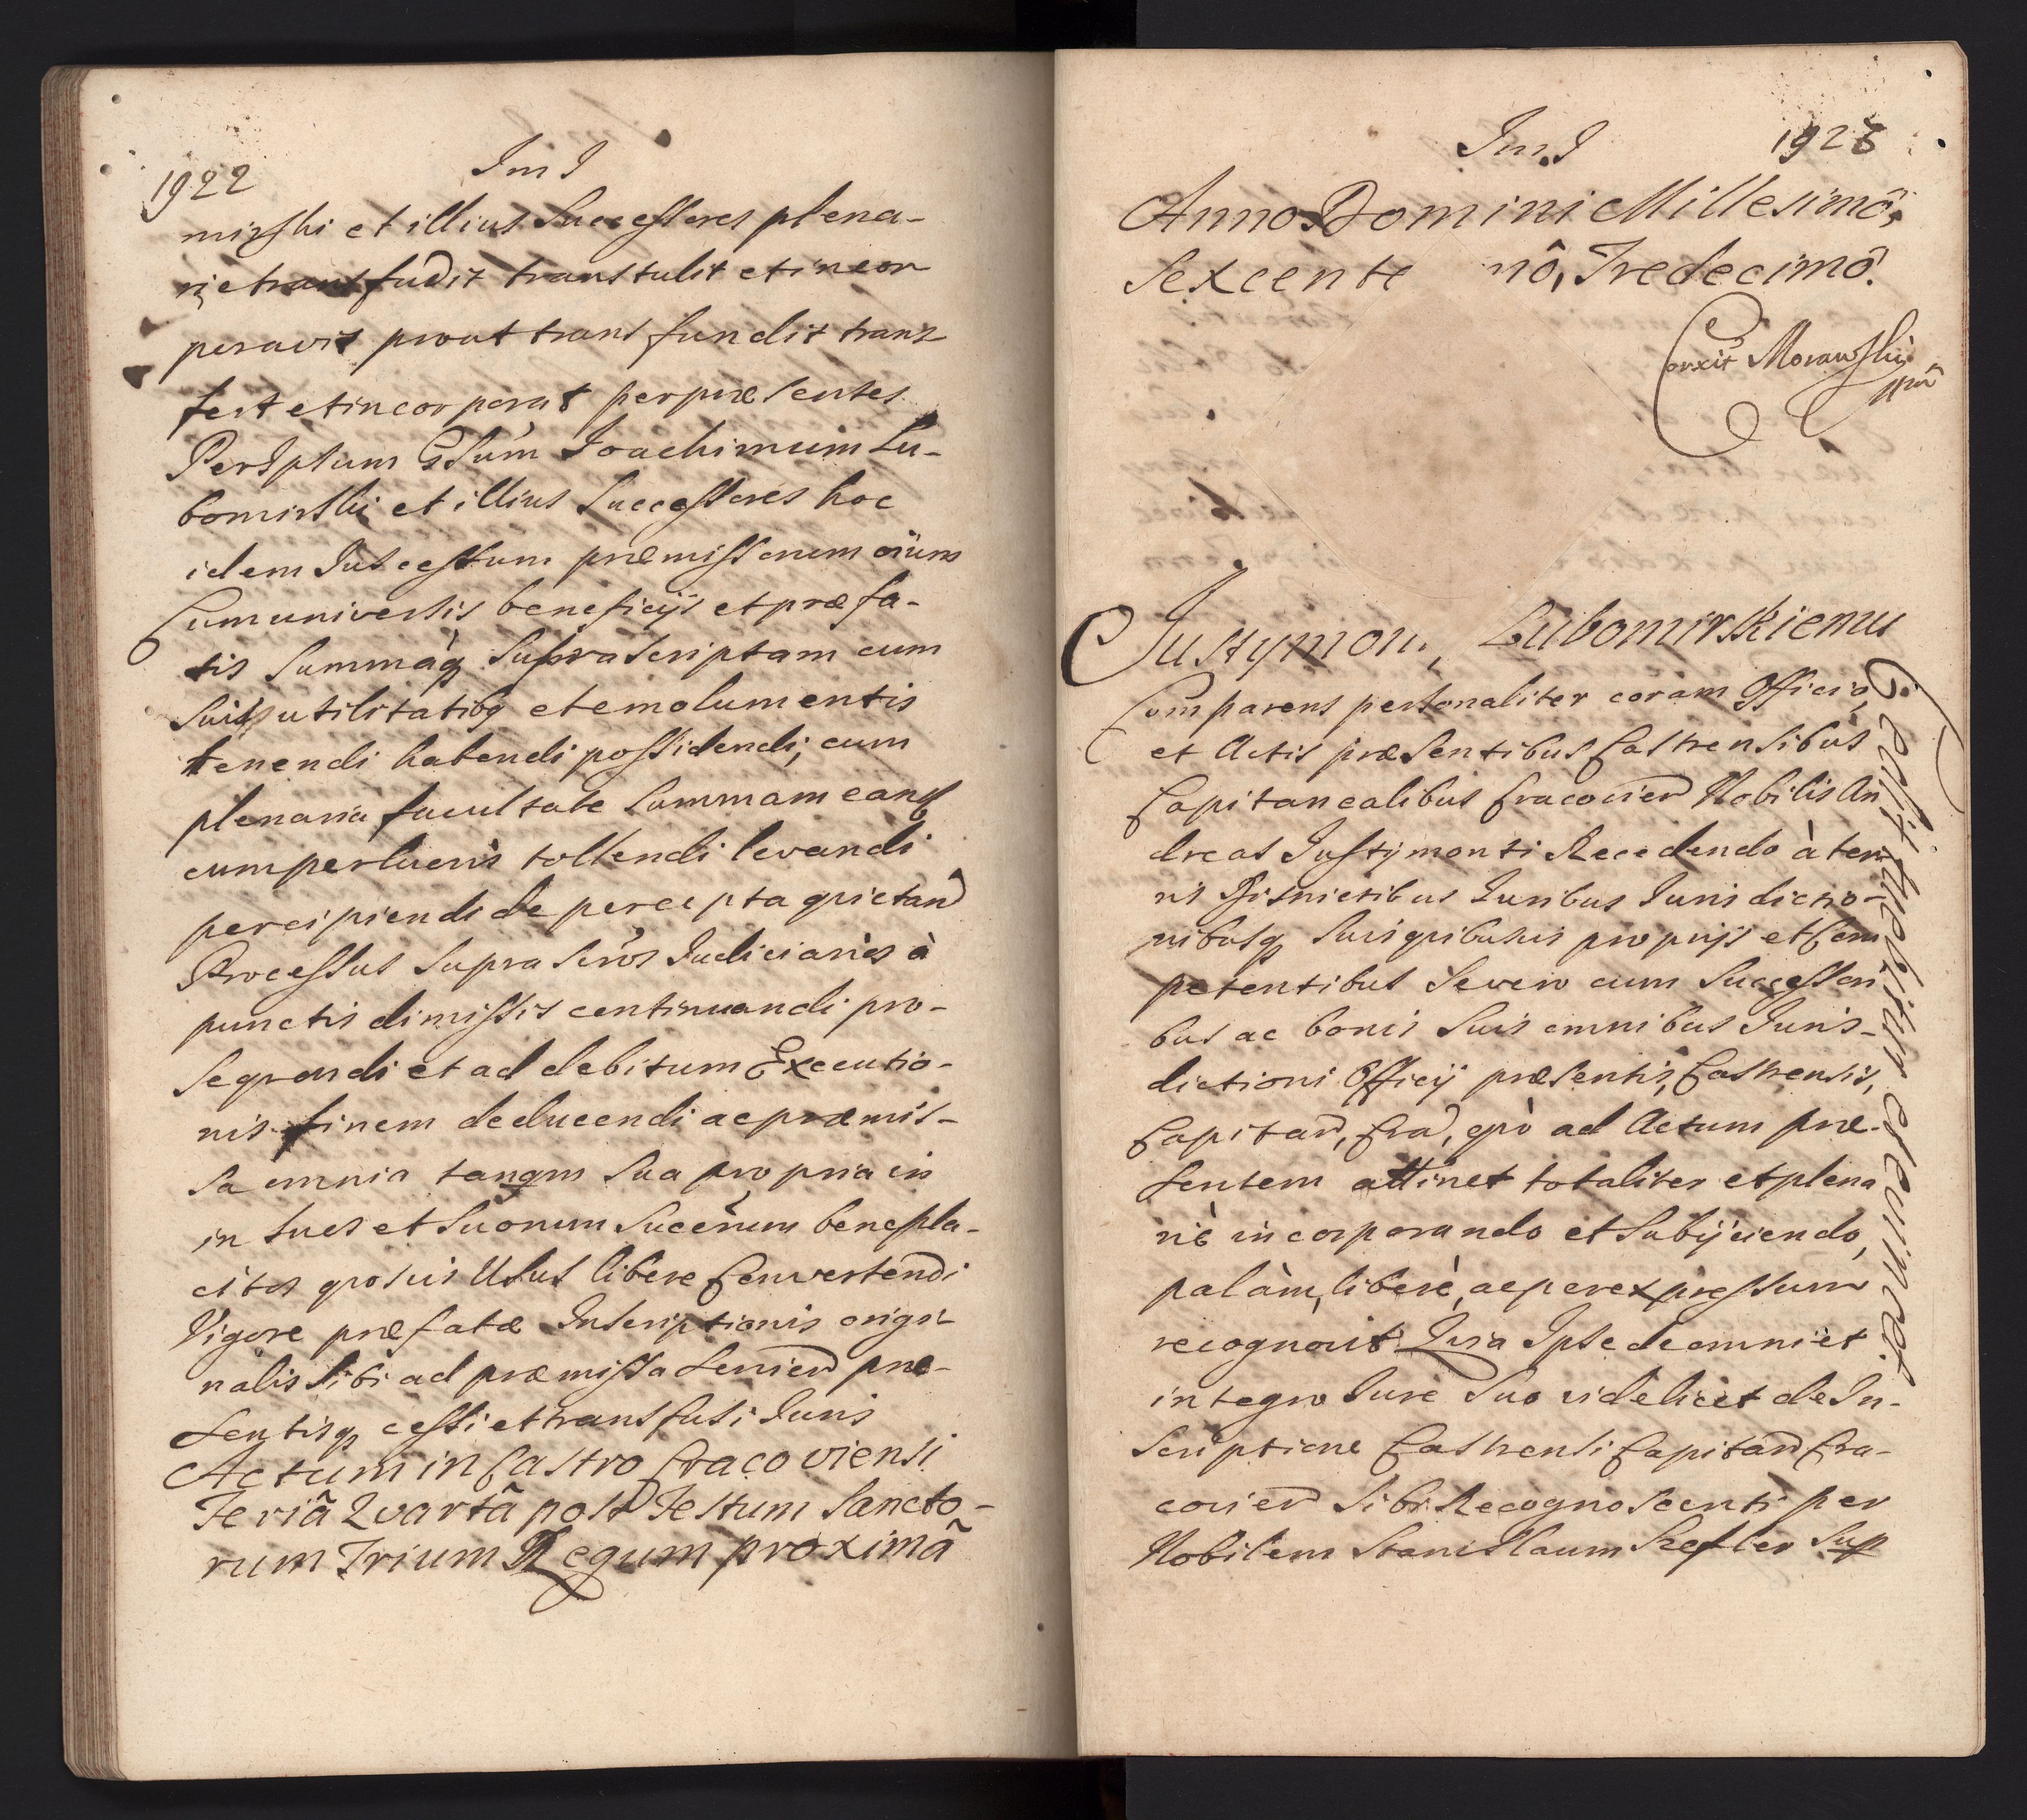 1922
Im I
mirski et illius Successores plena-
rie transfudit transtulit et incor
poravit prout transfundit trans
fert et incorporat per præsentes
Per Ipsum Gsum Ioachimum Lu-
bomirski et illius Successores hoc
idem Ius cessum præmissorum oium
Cum universis beneficijs et præfa-
tis Summāq supra scriptam cum
suis utilitatibq et emolumentis
tenendi habendi possidendi, cum
plenaria facultate Summam eanq
cum perlucris tollendi levandi
percipiendi de percepta quietand
Processus supra scros Iudiciarios à
punctis dimissis continuandi pro-
sequendi et ad debitum Executio-
nis finem deducendi ac præmis-
sa omnia tanqm sua propria in
in suos et suorum Succerum benepla-
citos quosvis Usus libere convertendi
Vigore præfatæ Inscriptionis origi-
nalis sibi ad præmissa servien præ-
sentisq cessi et transfusi Iuris
Actum in Castro Cracoviensi
Feriâ Quartâ post Festum Sancto-
rum Trium Regum proximâ
Im I
1923
Anno Domini Millesimô,
Sexcente nô, Tredecimô.
Corxit Morawski
mp
Justymon. Lubomirskiemu
Comparens personaliter coram Officio,
et Actis præsentibus Castrensibus
Capitanealibus Cracovien Nobilis An
dreas Justymonti Recedendo à terr
ris Districtibus Iuribus Iurisdictio-
nibusq suis quibusvis proprijs et Com
petentibus Se vero cum Successori
bus ac bonis suis omnibus Iuris-
dictioni Officij præsentis, Castrensis,
Capitan, Cra, quò ad Actum præ-
sentem attinet totaliter et plena
riè incorporando et Subijciendo,
palàm, liberè, ac per expressum
recognovit: Quia Ipse de omni et
integro Iure suo videlicet de In-
scriptione Castrensi Capitan Cra-
covien sibi Recognoscenti per
Nobilem Stanislaum Szefler Sup